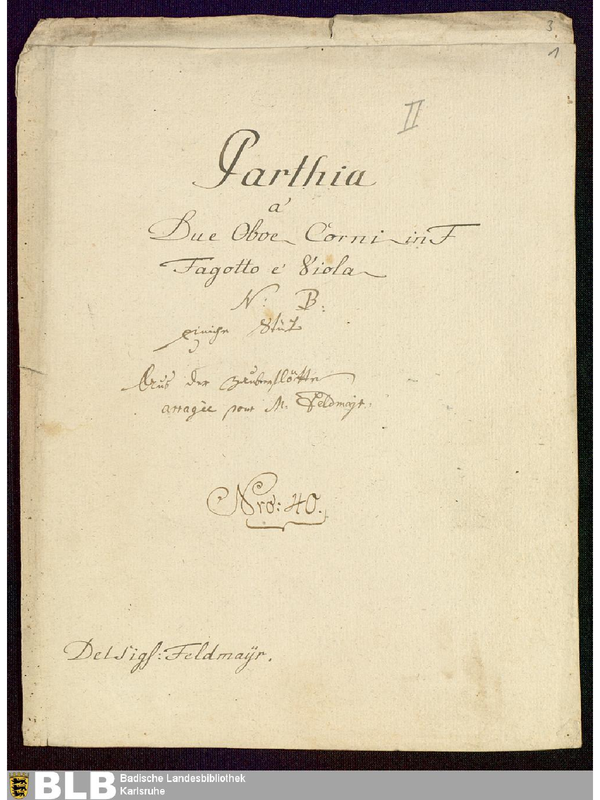 3
1
II
Parthia
a'
Due Oboe Corni in F
Fagotto e' Viola
N: B:
einige Stük
Aus der Zauberflötte
arragèe pour M. Feldmayr.
Nro: 40.
Del Sigl: Feldmaÿr.
BLB Badische Landesbibliothek
Karlsruhe